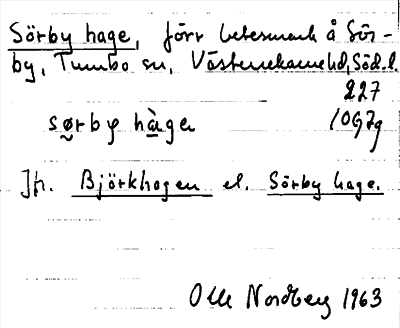 Sörby hage, förr betesmark å Sör-
by, Tumbo sn, Västerrekarne hd, Söd. l.
227
sørby hàga 10G7g
Jfr. Björkhagen el. Sörby hage.
Olle Nordberg 1963